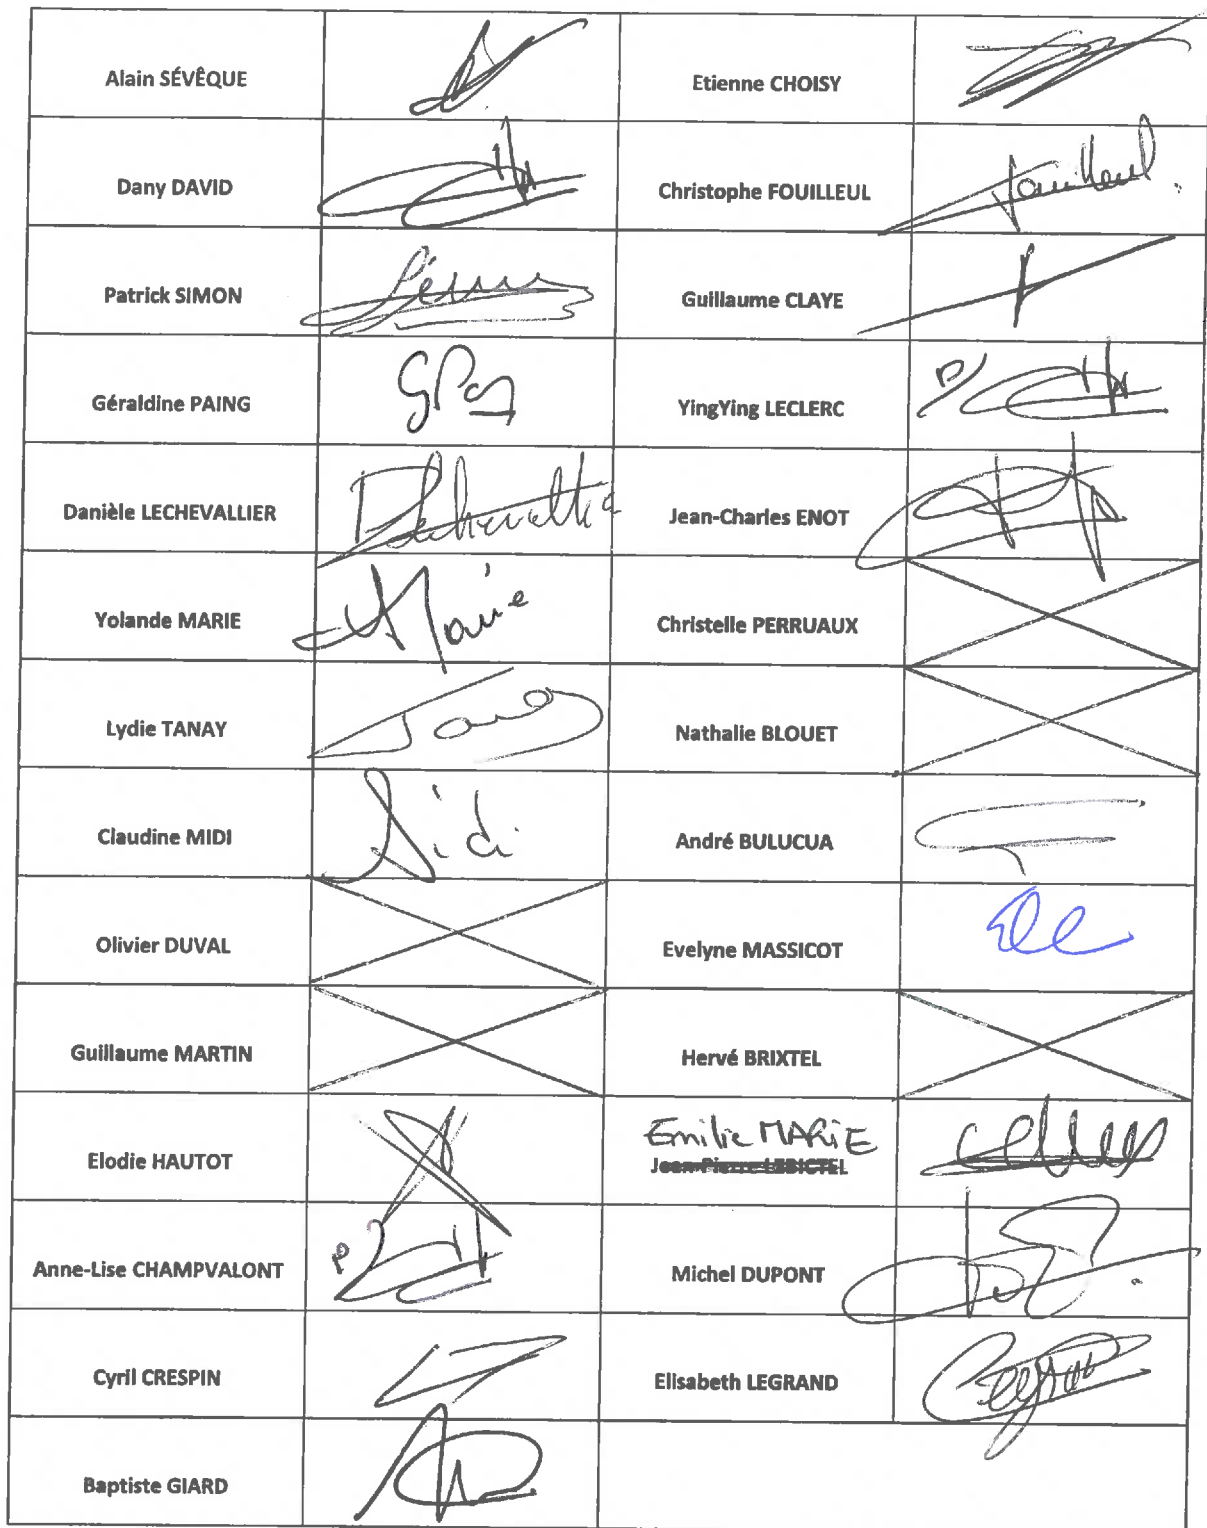 Alain SÉVÊQUE
Etienne CHOISY
Dany DAVID
Christophe FOUILLEUL
Fouilleul
Patrick SIMON
Guillaume CLAYE
Géraldine PAING
YingYing LECLERC
P/
Danièle LECHEVALLIER
Jean-Charles ENOT
Yolande MARIE
Marie
Christelle PERRUAUX
Lydie TANAY
Nathalie BLOUET
Claudine MIDI
Midi
André BULUCUA
Olivier DUVAL
Evelyne MASSICOT
Guillaume MARTIN
Hervé BRIXTEL
Elodie HAUTOT
Emilie MARIE
Jean-Pierre LEBICTEL
Anne-Lise CHAMPVALONT
P
Michel DUPONT
Cyril CRESPIN
Elisabeth LEGRAND
Baptiste GIARD